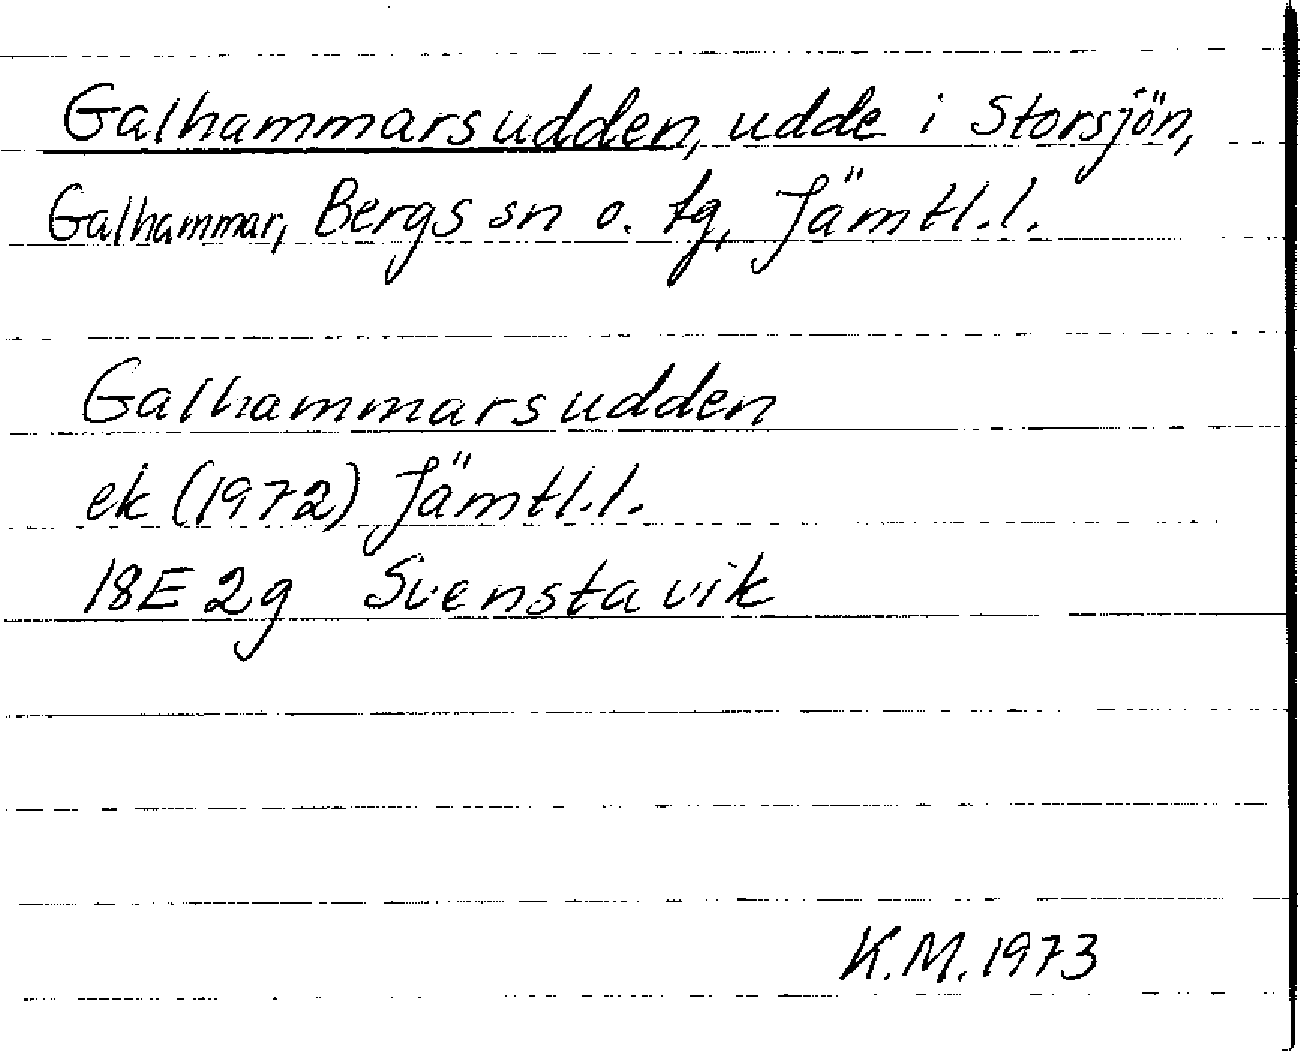 Galhammarsudden, udde i Storsjön,
Galhammar, Bergs sn o. tg, Jämtl.l.
Galhammarsudden
ek (1972) Jämtl.l.
18E 2g Svenstavik
K.M. 1973